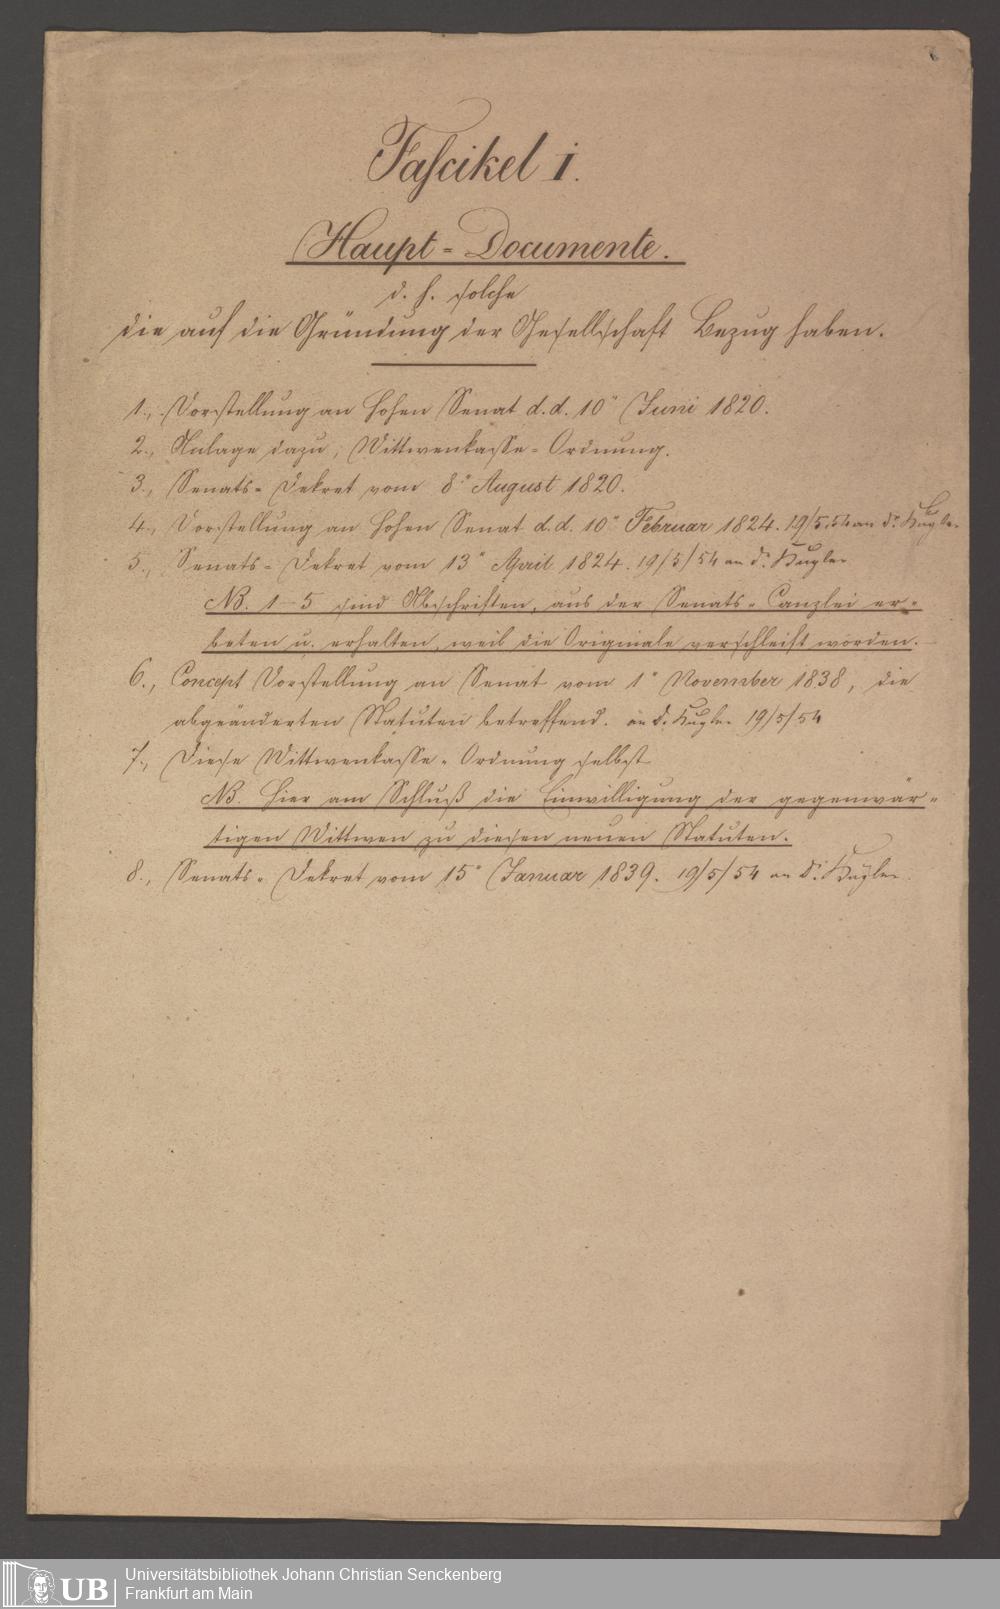 Fascikel I.
Haupt-Documente.
d. h. solche
die auf die Gründung der Gesellschaft Bezug haben.
1., Vorstellung an hohen Senat d. d. 10" Juni 1820.
2., Anlage dazu, Wittwenkasse-Ordnung.
3., Senats-Dekret vom 8" August 1820.
4., Vorstellung an hohen Senat d. d. 10" Februar 1824. 19/5/54 an Dr. Kugler
5., Senats-Dekret vom 13" April 1824. 19/5/54 an Dr. Kugler
NB. 1–5 sind Abschriften, aus der Senats-Canzlei er-
beten u. erhalten, weil die Originale verschleift worden.
6., Concept Vorstellung an Senat vom 1" November 1838, die
abgeänderten Statuten betreffend. an Dr. Kugler 19/5/54
7., Diese Wittwenkasse-Ordnung selbst
NB. Hier am Schluß die Einwilligung der gegenwär-
tigen Wittwen zu diesen neuen Statuten.
8., Senats-Dekret vom 15" Januar 1839. 19/5/54 an Dr. Kugler.
UB
Universitätsbibliothek Johann Christian Senckenberg
Frankfurt am Main